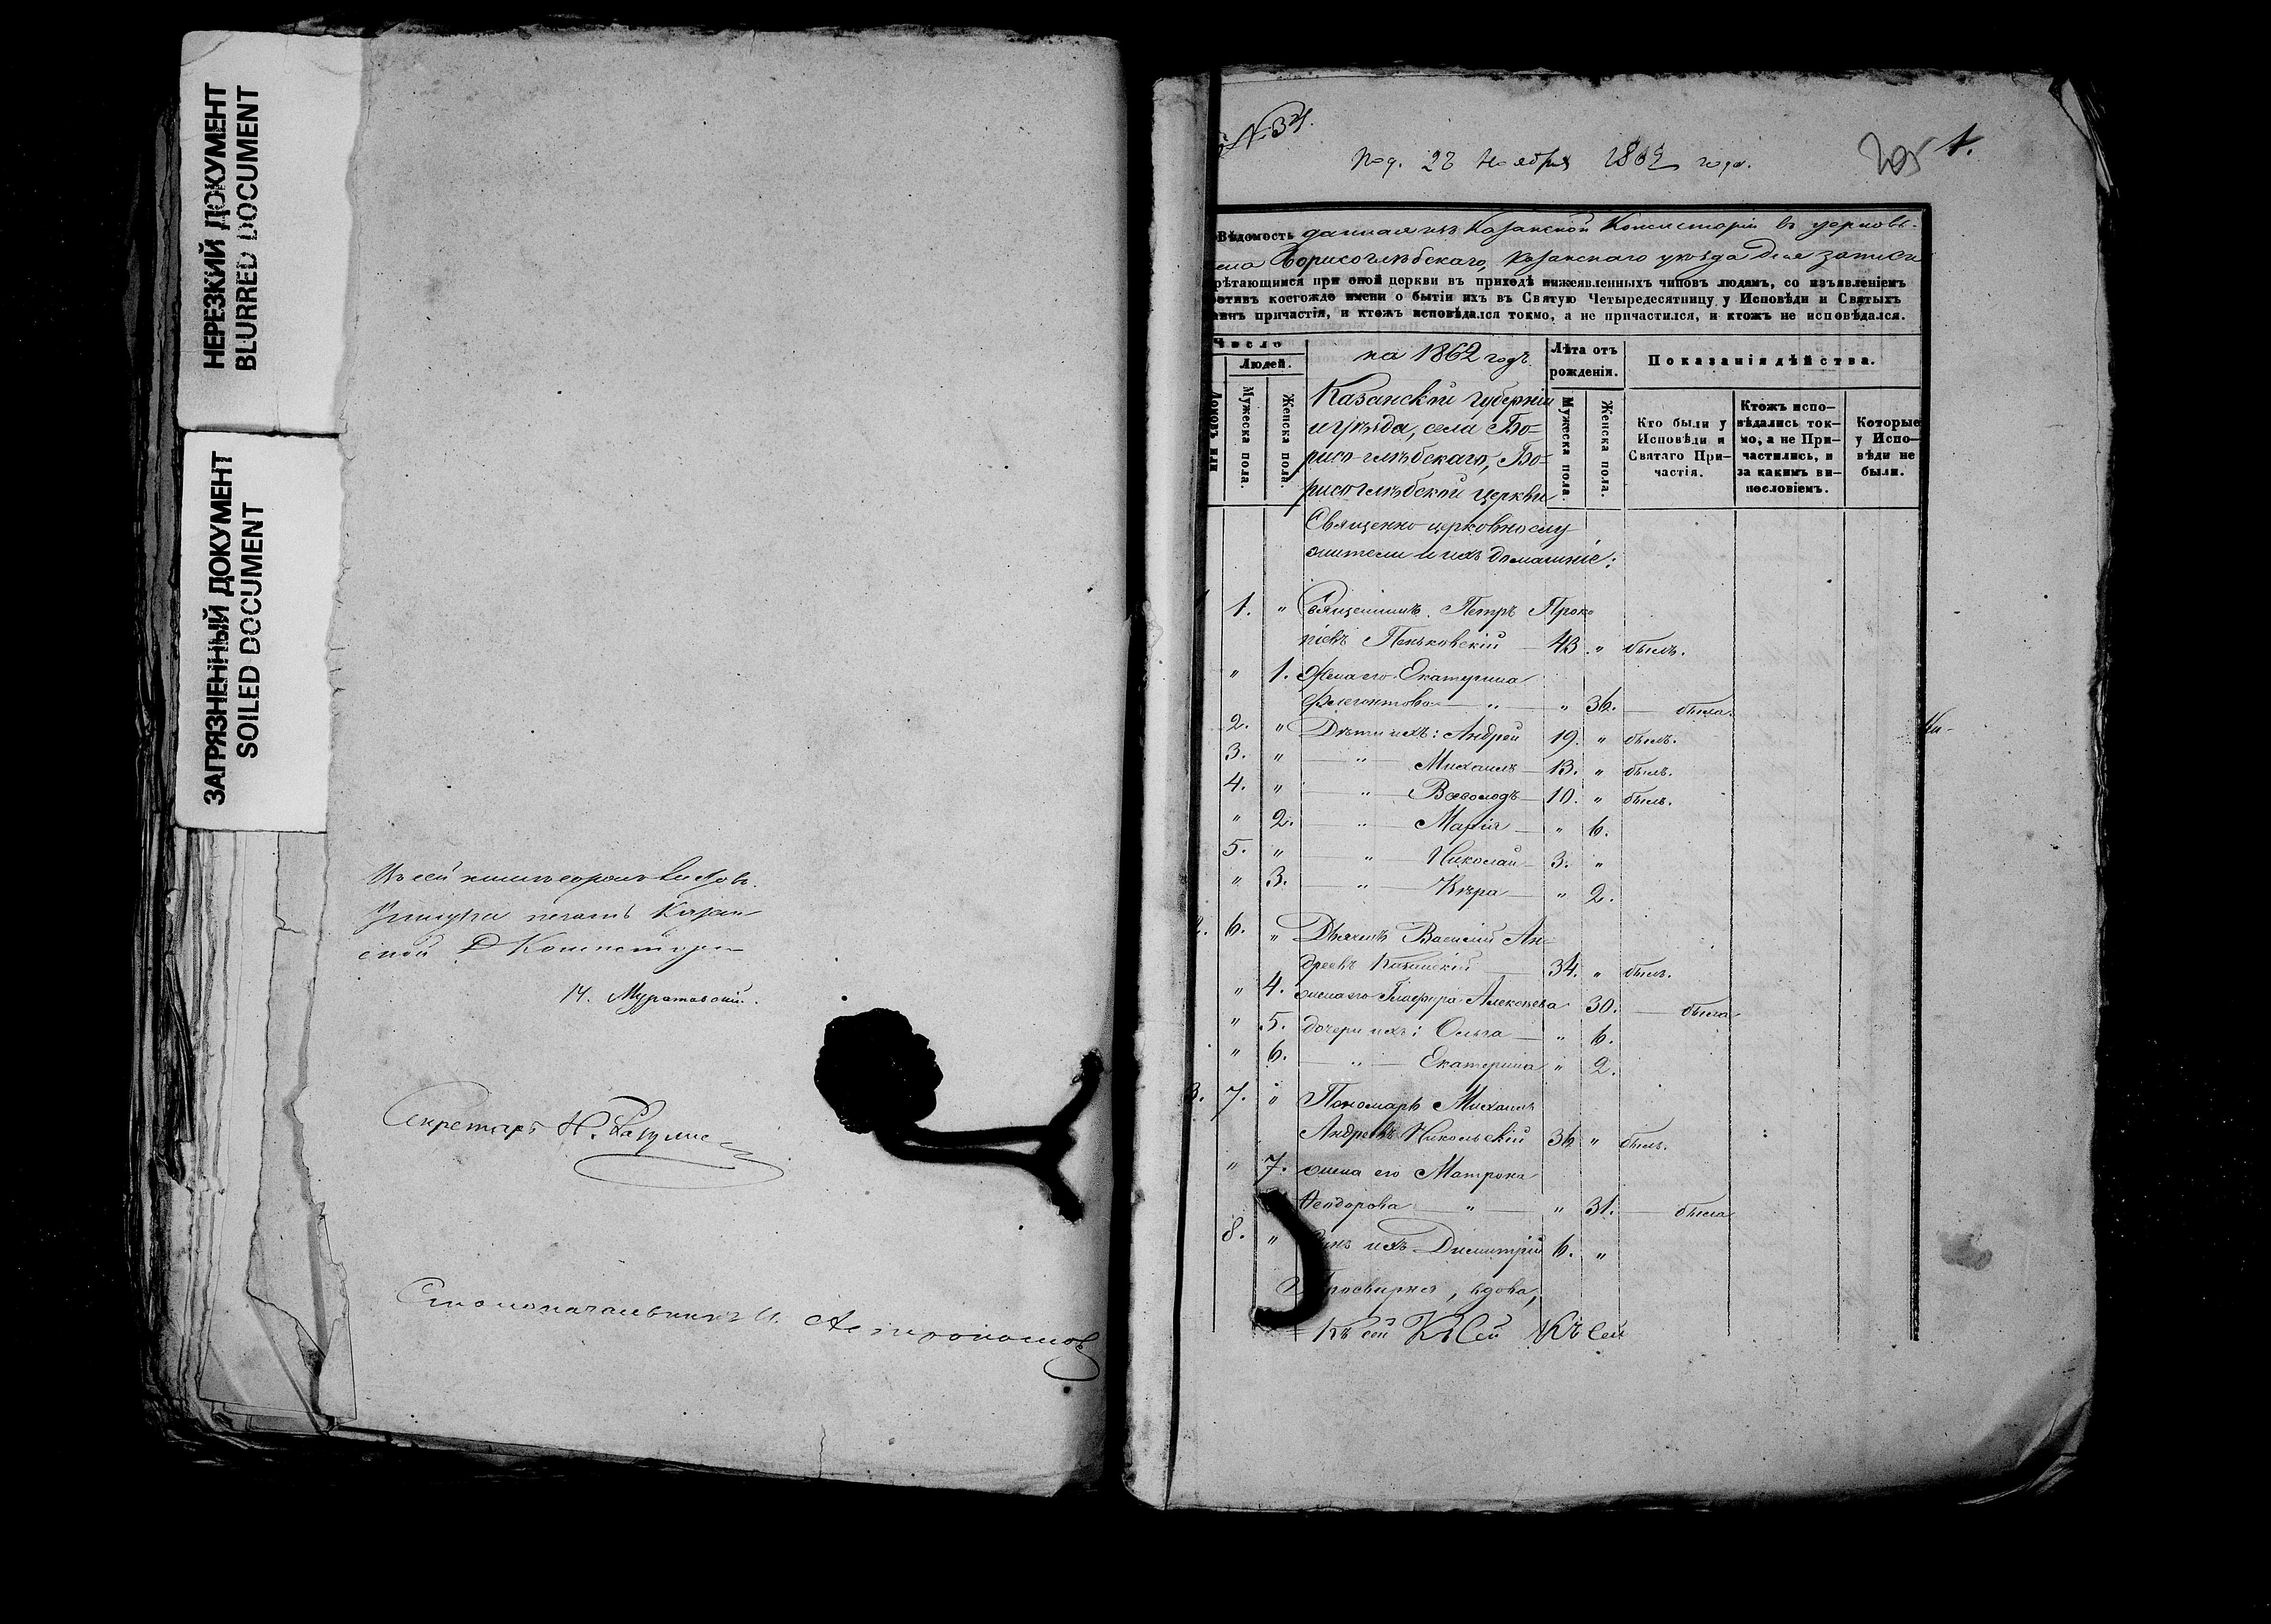 НЕРЕЗКИЙ ДОКУМЕНТ
BLURRED DOCUMENT
ЗАГРЯЗНЕННЫЙ ДОКУМЕНТ
SOILED DOCUMENT
Въ сей книгѣ сорокъ листовъ.
печать Казан
ской Д Консисторіи
Секретарь Н.
Столоначальникъ
№ 34.
Под. 28 Ноября 1862 года.
205 1.
Вѣдомость данная изъ Казанской Консисторіи въ церковь
села Борисоглѣбскаго, Казанскаго уѣзда для записи
рѣтающимся при оной церкви въ приходѣ нижеявленныхъ чиновъ людямъ, со изъявленіемъ
ротивъ коегождо имени о бытіи ихъ въ Святую Четыредесятницу у Исповѣди и Святыхъ
аинъ причастія, и ктожъ исповѣдался токмо, а не причастился, и ктожъ не исповѣдался.
Число
Людей.
Мужеска пола.
Женска пола.
на 1862 годъ
Казанской губерніи
и уѣзда, села Бо-
рисо-глѣбскаго, Бо-
рисоглѣбской церкви
Лѣта отъ рожденія.
Мужеска пола.
Женска пола.
Показанія дѣйства.
Кто были у Исповѣди и Святаго При-
частія.
Ктожъ испо-
вѣдались ток-
мо, а не При-
частились, и
за какимъ ви-
нословіемъ.
Которые
у Испо-
вѣди не
были.
Священно-церковнослу
жители и ихъ домашніе:
1 1. " Священникъ Петръ Проко
піевъ Пеньковскій 43. " былъ.
" 1. Жена его Екатерина
Флегонтова " " 36. была.
2. " Дѣти ихъ: Андрей 19. " былъ.
3. " " Михаилъ 13. " былъ.
4. " " Всеволодъ 10. " былъ.
" 2. " Марія " 6.
5. " " Николай 3. "
" 3. " Вѣра " 2.
2. 6. " Дьячекъ Василій Ан-
дреевъ Казанскій 34. " былъ.
" 4. жена его Глафира Алексѣева 30. была
" 5. дочери ихъ: Ольга " 6.
" 6. " Екатерина " 2.
3. 7. " Пономарь Михаилъ
Андреевъ Никольскій 36 " былъ.
" 7. жена его Матрона
Ѳеодорова " " 31. была
8. " Сынъ ихъ Димитрій 6. "
Просвирня, вдова,
Къ сей Къ Сей Къ Сей